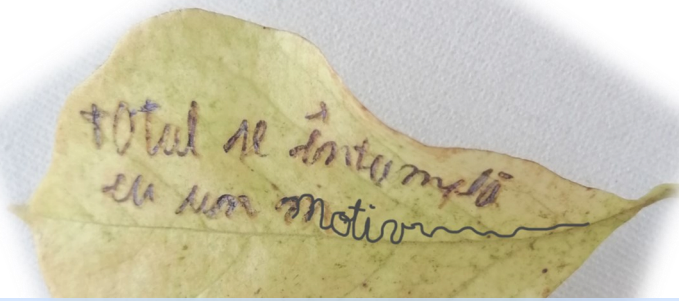 totul se întumplă
cu un motiv